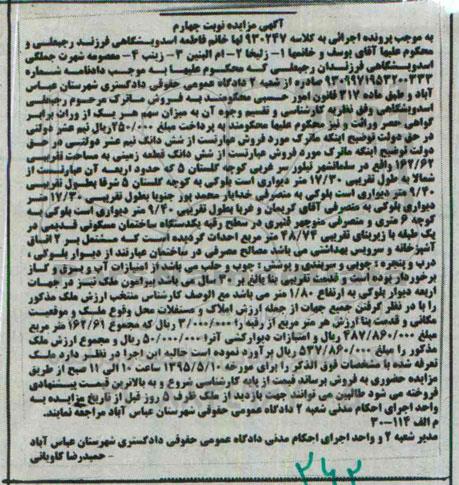 آگهی مزایده نوبت چهارم
به موجب پرونده اجرائی به کلاسه ۹۳۰۲۴۷ لها خانم فاطمه اسدویشگاهی فرزند رجبعلی و
محکوم علیها آقای یوسف و خانمها ۱- زلیخا ۲- ام البنین ۳- زینب ۴- معصومه شهرت جملگی
اسدویشگاهی فرزندان رجبعلی که محکوم علیها به موجب دادنامه شماره
۹۳۰۹۹۷۱۹۵۳۲۰۰۳۳۳ صادره از شعبه ۲ دادگاه عمومی حقوقی دادگستری شهرستان عباس
آباد و طبق ماده ۳۱۷ قانون امور حسبی محکومند به فروش ماترک مرحوم رجبعلی
اسدویشگاهی وفق نظریه کارشناسی و تقسیم وجوه آن به میزان سهم هر یک از وراث برابر
گواهی حصر وراثت و نیز محکوم علیها محکومند به پرداخت مبلغ ۲۵۰/۰۰۰ریال نیم عشر دولتی
در حق دولت توضیح اینکه ماترک مورد فروش عبارتست از شش دانگ نیم عشر دولتی در حق
دولت توضیح اینکه ماترک مورد فروش عبارتست از شش دانگ قطعه زمینی به مساحت تقریبی
۱۶۲/۶۲ واقع در سلمانشهر کیلور سر غربی کوچه گلستان ۵ که حدود اربعه آن عبارتست از
شمالا به طول تقریبی ۱۷/۳۰ متر دیواری است بلوکی به کوچه گلستان ۵ شرقا بطول تقریبی
۹/۴۰ متر دیواری است بلوکی به متصرفی خدایار محمد پور جنوبا بطول تقریبی ۱۷/۳۰ متر
دیواری بلوکی به متصرفی آقای کریمان و غربا بطول تقریبی ۹/۴۰ متر دیواری است بلوکی به
کوچه ۶ متری و متصرفی منوچهر قنبری در سطح رقبه یکدستگاه ساختمان مسکونی قدیمی در
یک طبقه با زیربنای تقریبی ۴۸/۷۴ متر مربع احداث گردیده است که مشتمل بر ۲ اتاق
آشپزخانه و سرویس بهداشتی می باشد مصالح مصرفی در ساختمان عبارتند از دیوار بلوکی ،
درب و پنجره چوبی و سربندی و پوشش : چوب و حلب می باشد از امتیازات آب و برق و گاز
برخوردار بوده است و قدمت تقریبی بنا بالغ بر ۳۰ سال می باشد پیرامون ملک نیز در جهات
اربعه دیوار بلوکی به ارتفاع ۱/۸۰ متر می باشد مع الوصف کارشناس منتخب ارزش ملک مذکور
را با در نظر گرفتن جمیع جهات از جمله ارزش املاک و مستغلات محل وقوع ملک و موقعیت
مکانی و قدمت بنا ارزش هر متر مربع از رقبه را ۳/۰۰۰/۰۰۰ ریال که مجموع ۱۶۲/۶۱ متر مربع
مبلغ ۴۸۷/۸۶۰/۰۰۰ ریال و امتیازات دیوارکشی آنرا ۵۰/۰۰۰/۰۰۰ ریال و مجموع ارزش ملک
مذکور را مبلغ ۵۳۷/۸۶۰/۰۰۰ ریال برآورد نموده است حالیه این اجرا در نظر دارد ملک
تعرفه شده با مشخصات فوق الذکر را برای مورخه ۱۳۹۵/۵/۱۰ ساعت ۱۰ الی ۱۱ صبح از طریق
مزایده حضوری به فروش برساند قیمت از پایه کارشناسی شروع و به بالاترین قیمت پیشنهادی
فروخته می شود طالبین می توانند جهت بازدید از ملک ظرف ۵ روز قبل از تاریخ مزایده به
واحد اجرای احکام مدنی شعبه ۲ دادگاه عمومی حقوقی شهرستان عباس آباد مراجعه نمایند.
م الف ۱۱۴-۳۰
مدیر شعبه ۲ و واحد اجرای احکام مدنی دادگاه عمومی حقوقی دادگستری شهرستان عباس آباد
- حمیدرضا کاویانی
۲۴۲